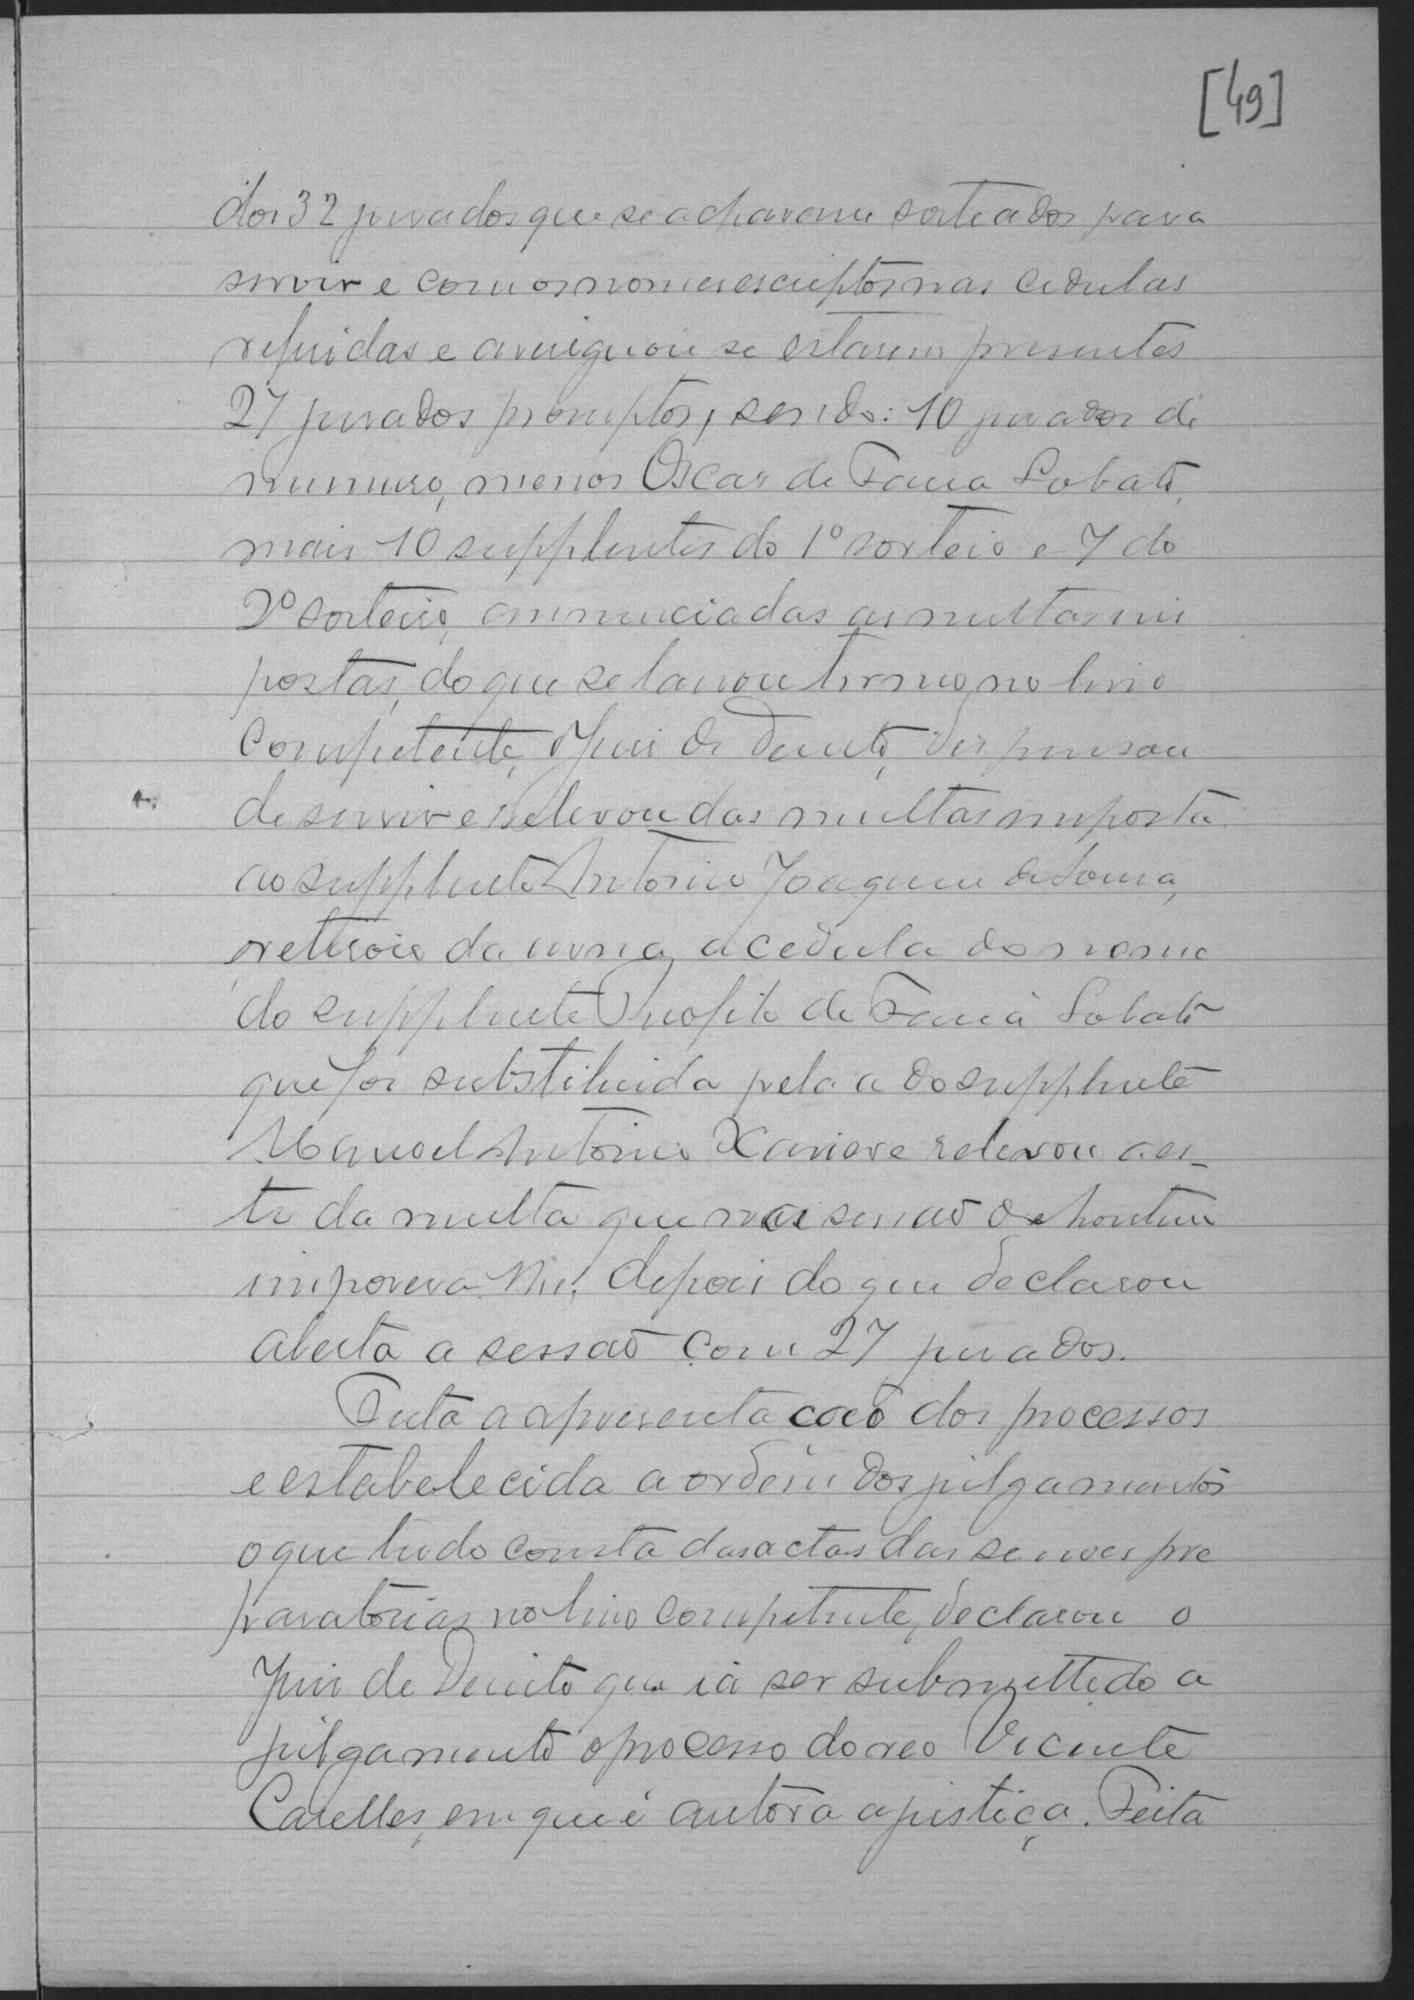 [49]
dos 32 jurados que se acharem sorteados para
servir e com os nomes escriptos nas cedulas
referidas e averiguou se estarem presentes
27 jurados promptos, sendo: 10 jurados de
numero, menos Oscar de Faria Lobato,
mais 10 supplentes do 1º sorteio e 7 do
2º sorteio, annunciadas as multas im
postas, do que se lavrou termo, no livro
competente, o Juiz de Direito, dispensou
de servir e relevou das multas imposta
ao supplente Antonio Joaquim de Souza,
retirou da urna, a cedula do nome
do supplente de Faria Lobato
que foi substituida pela a do supplente
Manoel Antonio Xavier e relevou a es-
te da multa que na sessão de hontem
impozera-lhe, depois do que declarou
aberta a sessão com 27 jurados.
Feita a apresentacão dos processos
e estabelecida a ordem dos julgamentos
o que tudo consta das actas das sessoes pre
paratorias no livro competente, declarou o
Juiz de Direito que ia ser submettido a
julgamento o processo do reo Vicente
Carelles, em que é autora a justiça. Feita